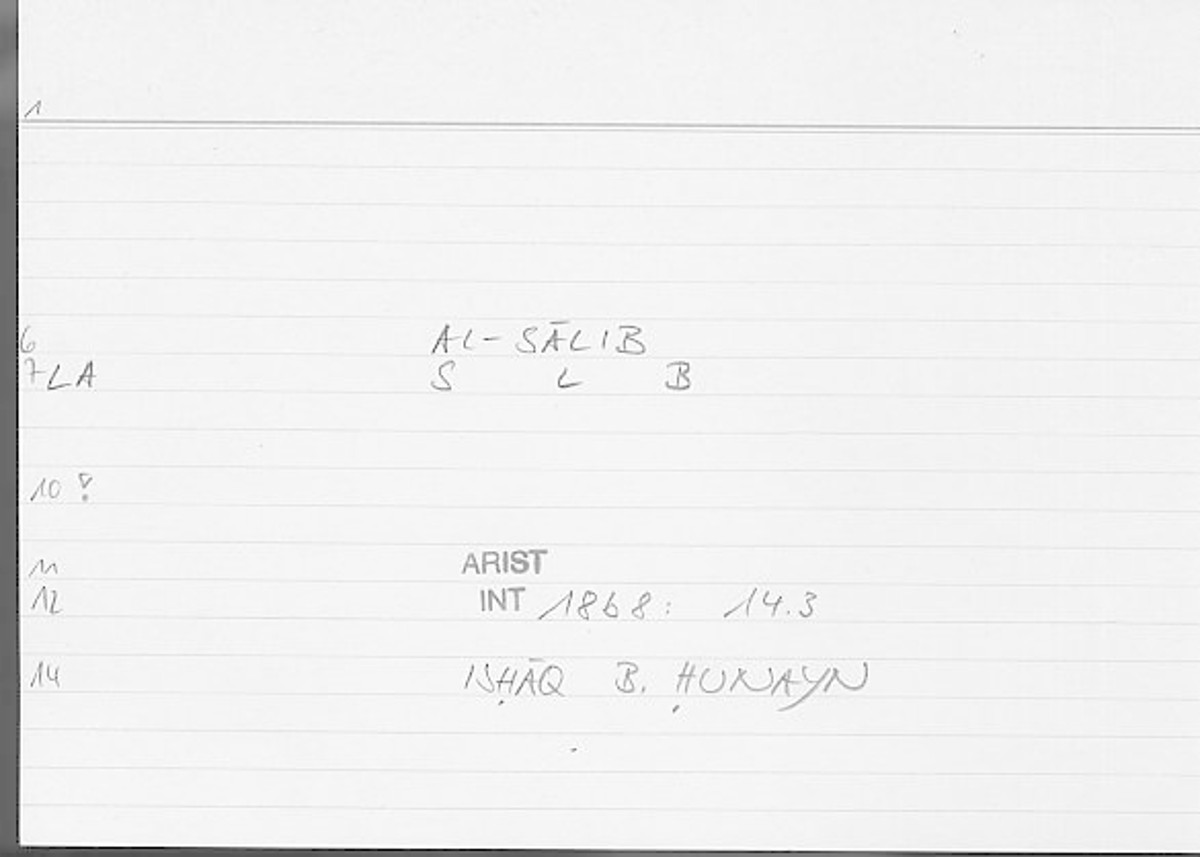 1
6 AL-SĀLIB
7 LA S L B
10 !
11 ARIST
12 INT 1868: 14.3
14 ISḤĀQ B. ḤUNAYN